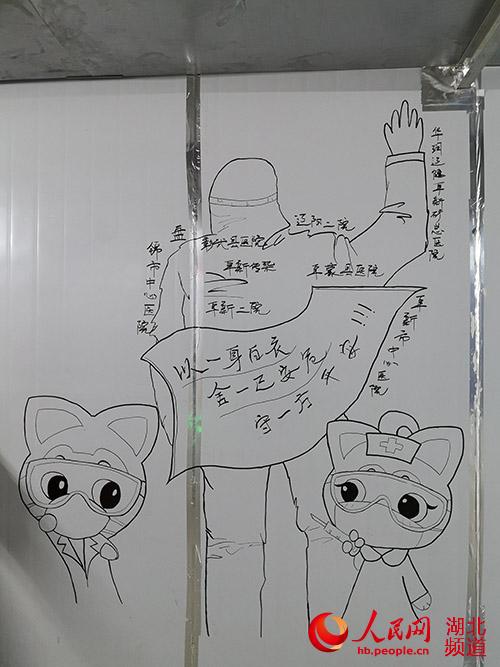 华润辽健阜新矿总医院
辽阳二院
盘
彰武县医院
锦市中心医院
阜新传染
阜蒙县医院
阜新二院
阜新市中心医院
以一身白衣
舍一己安危
守一方
人民网 湖北频道
hb.people.cn